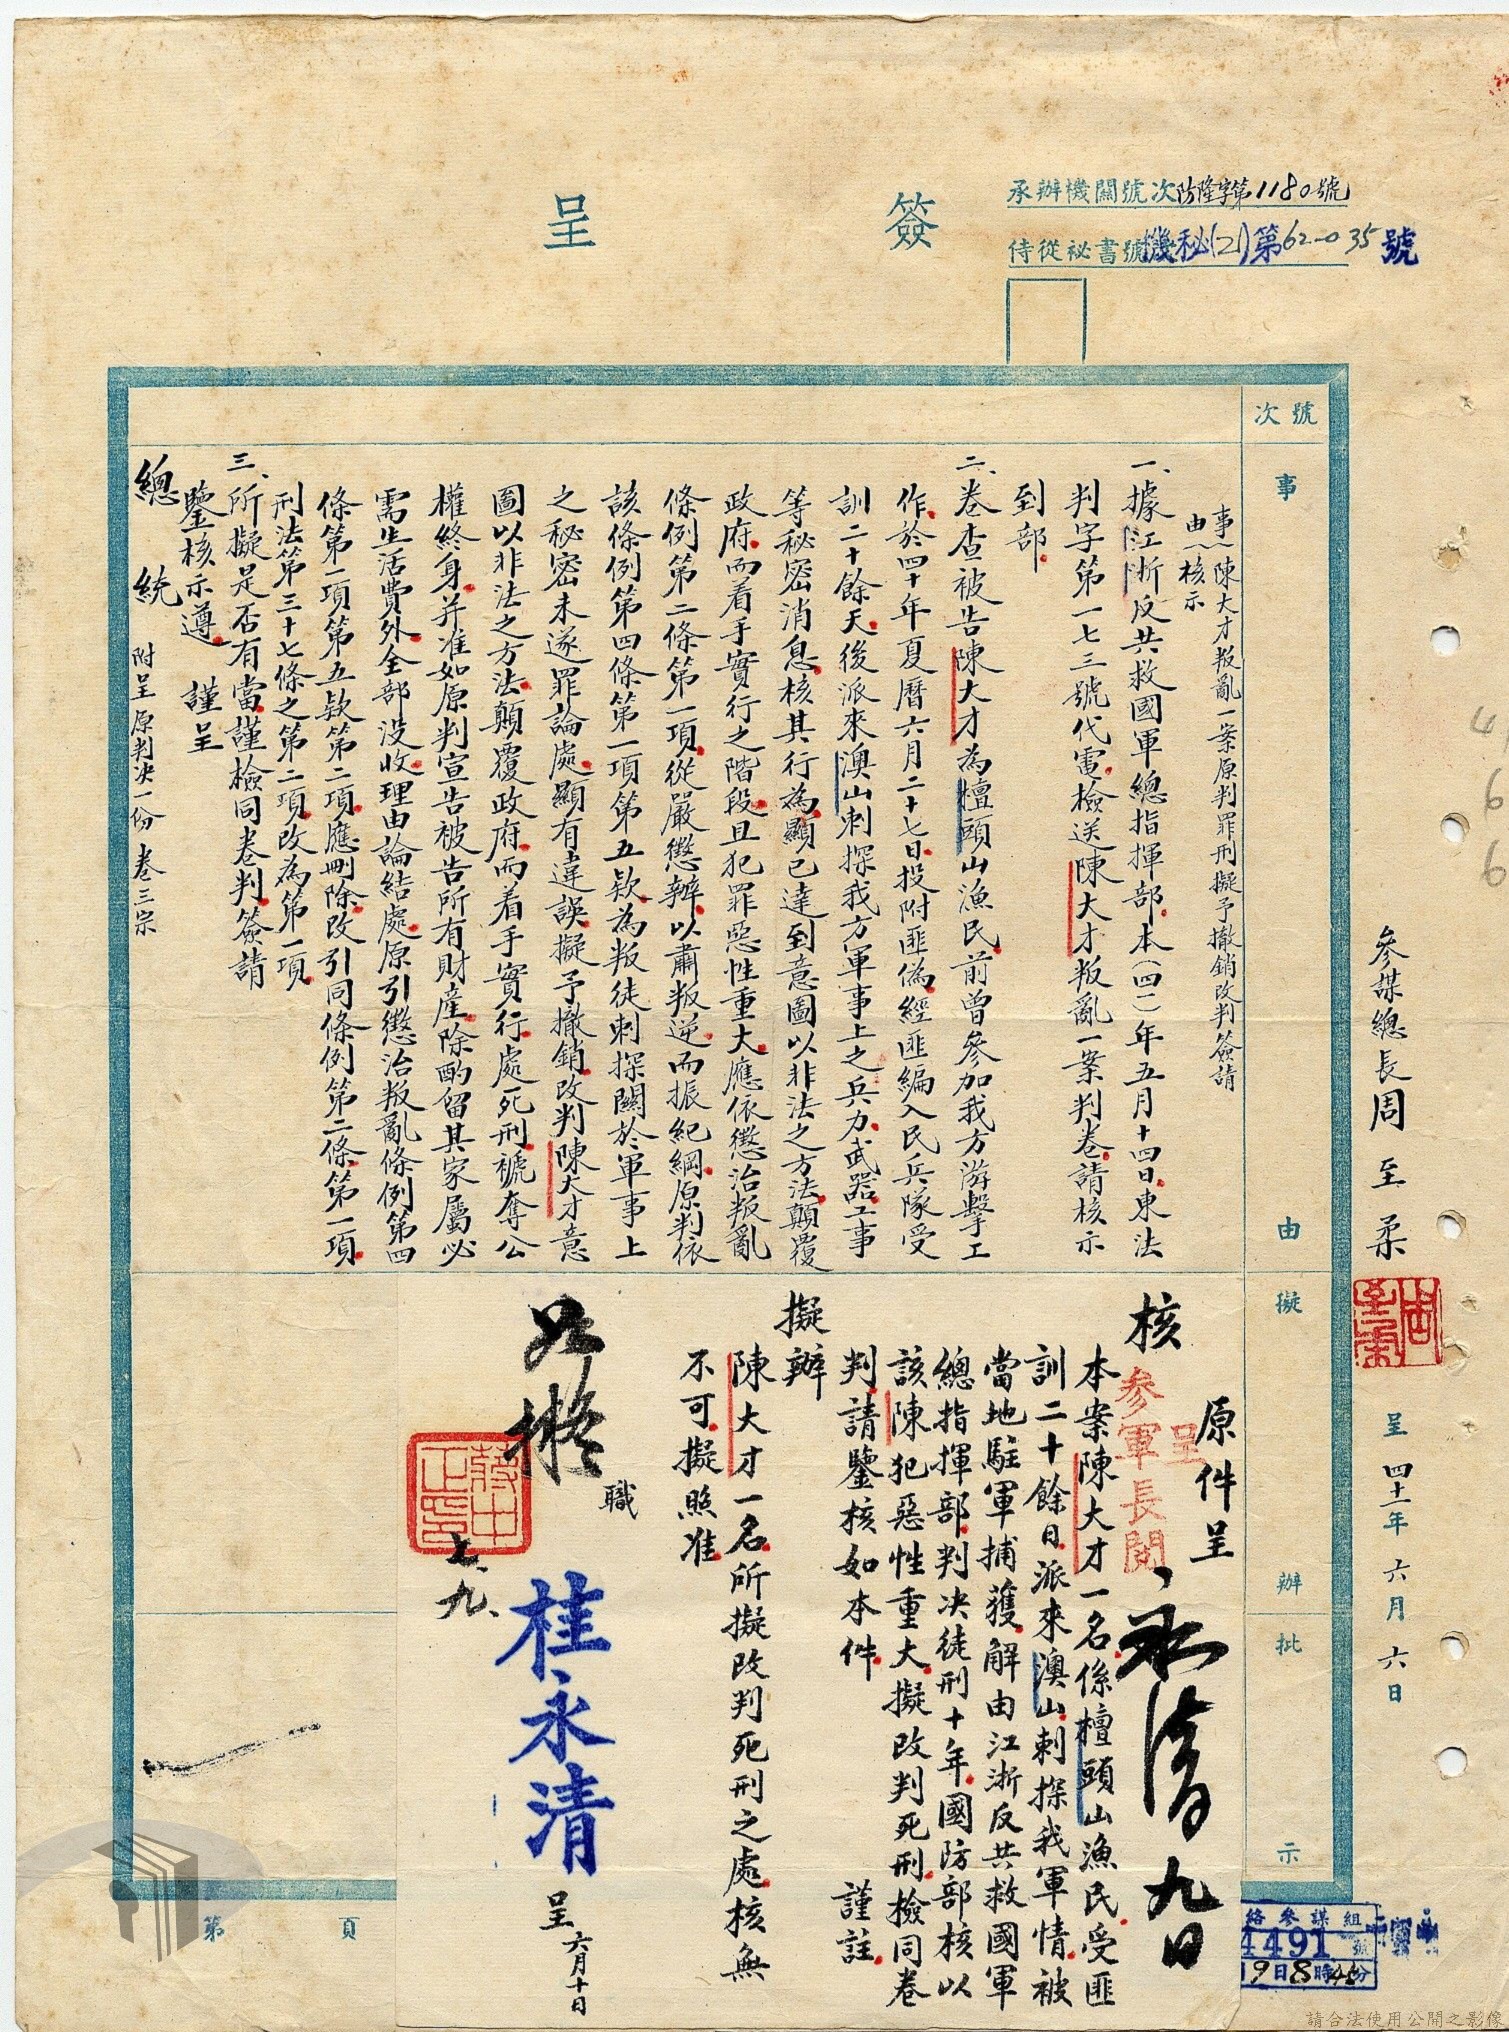 簽呈
承辦機關號次防隆字第1180號
侍從祕書號次機秘(21)第62-035號
號次
事由
擬辦
批示
事由:陳大才叛亂一案原判罪刑擬予撤銷改判簽請
核示
一、據江浙反共救國軍總指揮部本(四二)年五月十四日東法
判字第一七三號代電檢送陳大才叛亂一案判卷請核示
到部
二、卷查被告陳大才為檀頭山漁民前曾參加我方游擊工
作於四十年夏曆六月二十七日投附匪偽經匪編入民兵隊受
訓二十餘天後派來澳山刺探我方軍事上之兵力武器工事
等秘密消息核其行為顯已達到意圖以非法之方法顛覆
政府而着手實行之階段且犯罪惡性重大應依懲治叛亂
條例第二條第一項從嚴懲辦以肅叛逆而振紀綱原判依
該條例第四條第一項第五款為叛徒刺探關於軍事上
之秘密未遂罪論處顯有違誤擬予撤銷改判陳大才意
圖以非法之方法顛覆政府而着手實行處死刑褫奪公
權終身并准如原判宣告被告所有財產除酌留其家屬必
需生活費外全部沒收理由論結處原引懲治叛亂條例第四
條第一項第五款第二項應刪除改引同條例第二條第一項
刑法第三十七條之第二項改為第一項
三、所擬是否有當謹檢同卷判簽請
鑒核示遵 謹呈
總統 附呈原判決一份卷三宗
參謀總長周至柔
周至柔
呈 四十二年六月六日
原件呈
核
呈
參軍長閱
永清 九日
本案陳大才一名係檀頭山漁民受匪
訓二十餘日派來澳山刺探我軍情被
當地駐軍捕獲解由江浙反共救國軍
總指揮部判決徒刑十年國防部核以
該陳犯惡性重大擬改判死刑檢同卷
判請鑒核如本件 謹註
擬辦
陳大才一名所擬改判死刑之處核無
不可擬照准
職
桂永清
呈 六月十日
如擬
蔣中正印
七、九、
第 頁
絡參謀組
4491號
9日8時45分
4
6
6
請合法使用公開之影像